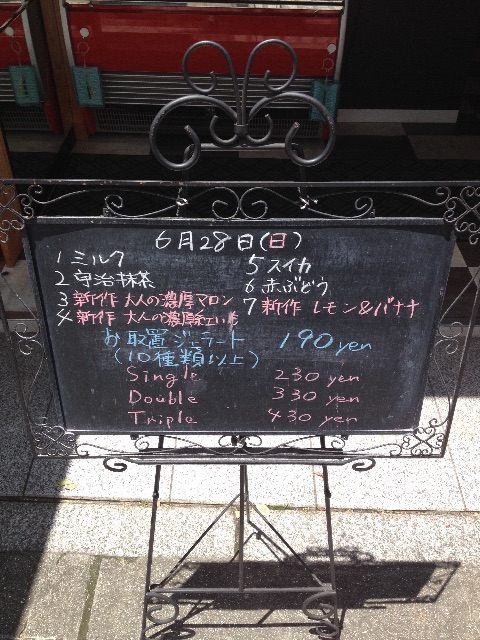 6月28日(日)
1 ミルク
2 宇治抹茶
3 新作 大人の濃厚マロン
4 新作 大人の濃厚紅いも
5 スイカ
6 赤ぶどう
7 新作 レモン&バナナ
お取置ジェラート 190 yen
(10種類以上)
Single 230 yen
Double 330 yen
Triple 430 yen